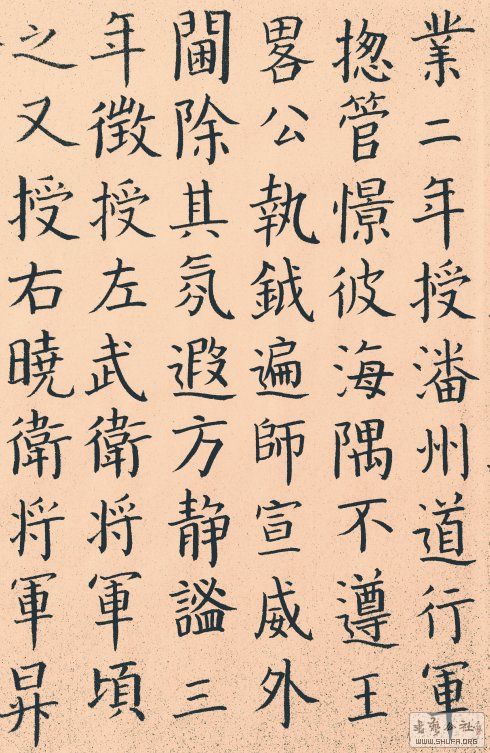 業二年授潘州道行軍
揔管憬彼海隅不遵王
畧公執鉞遍師宣威外
閫除其氛遐方静謐三
年徵授左武衛将軍頃
之又授右曉衛将軍昇
WWW.SHUFA.ORG